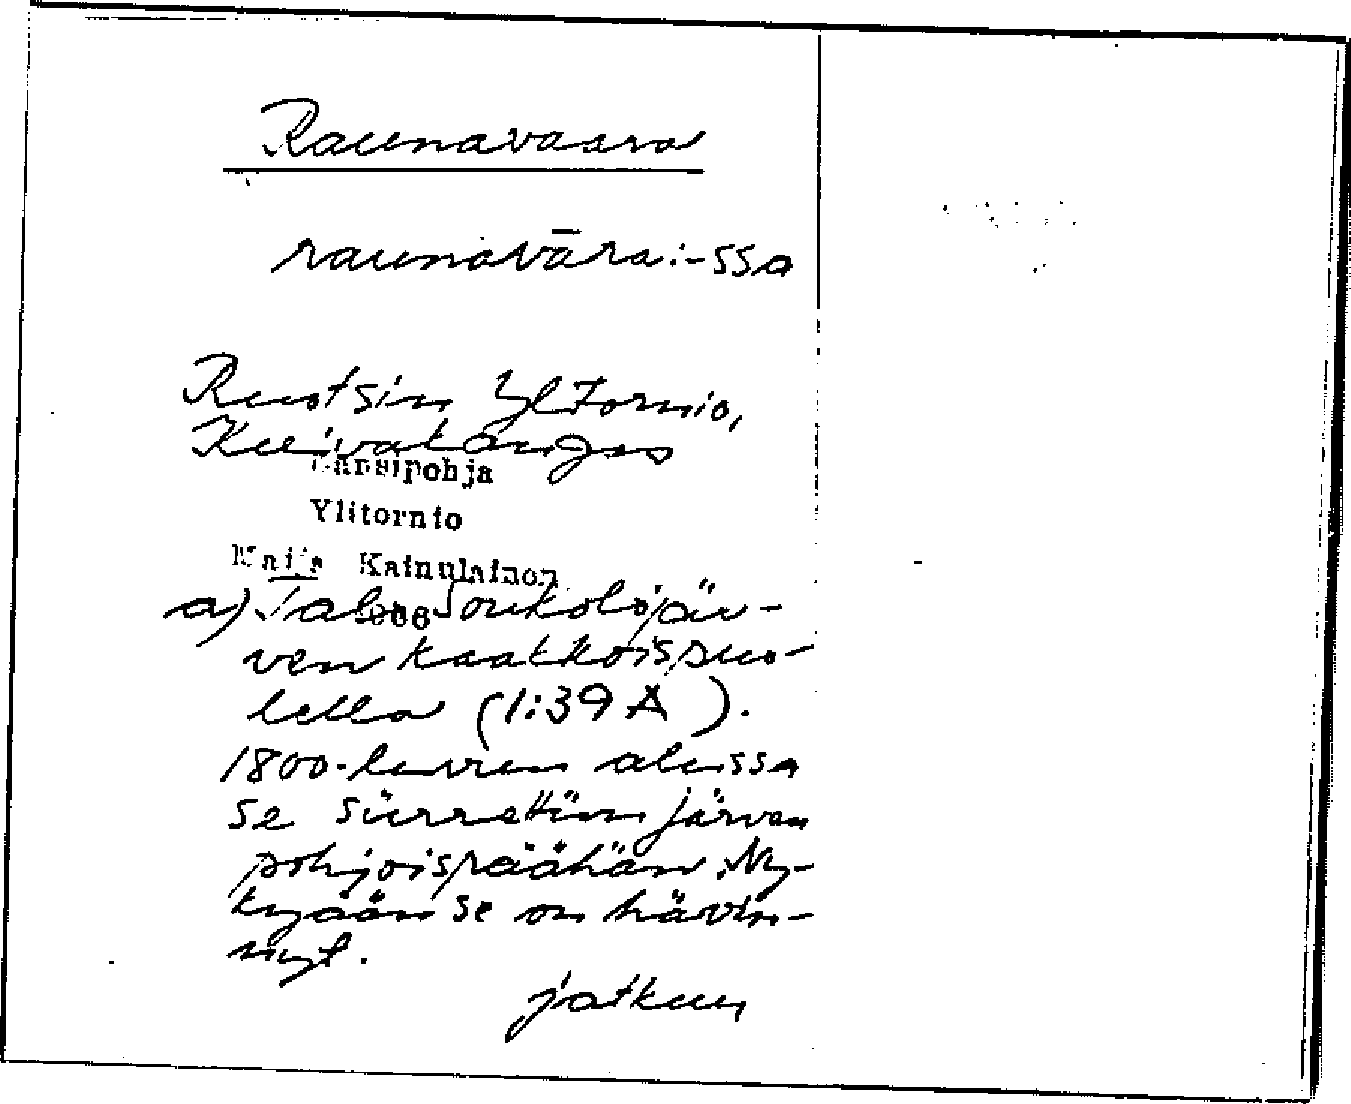 Raunavaara
raunavāra:-ssa
Ruotsin Yltornio,
Kuivakangas
Länsipohja
Ylitornio
Maija Kainulainen
a) Talo Joukolojär-
ven kaakkoispuo-
lella (1:39 A ).
1800-luvun alussa
se siirrettiin järven
pohjoispäähän. Ny-
kyään se on hävin-
nyt.
jatkuu